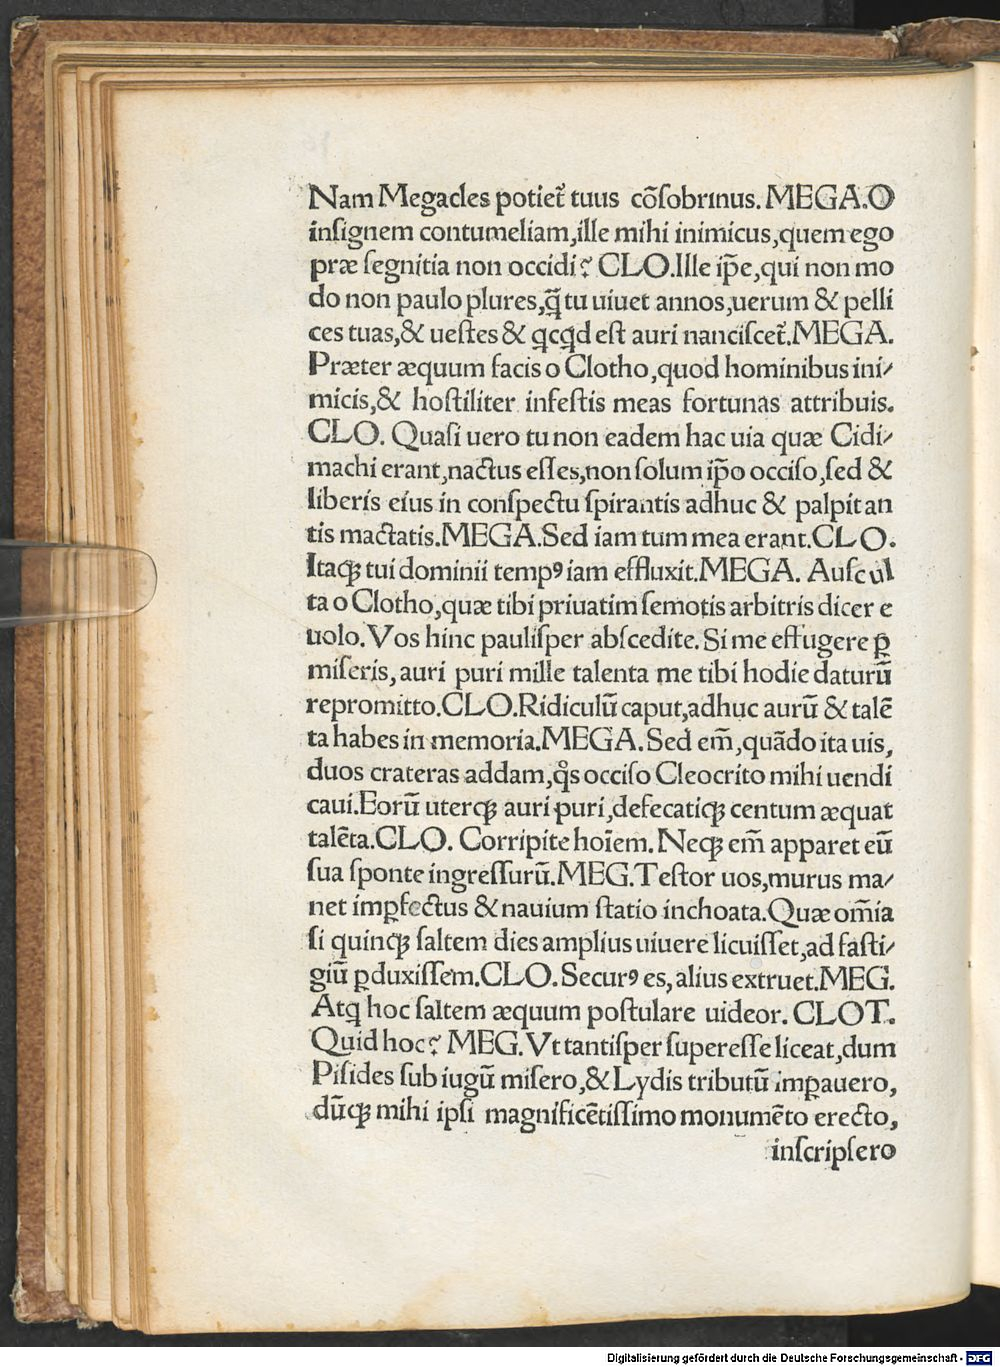 Nam Megacles potiet̃ tuus cõſobrinus. MEGA.O
inſignem contumeliam,ille mihi inimicus,quem ego
præ ſegnitia non occidi? CLO.Ille ip̃e,qui non mo
do non paulo plures,q̃ tu uiuet annos,uerum & pelli
ces tuas,& ueſtes & ꝗcꝗd eſt auri nanciſcet̃.MEGA.
Præter æquum facis o Clotho,quod hominibus ini⸗
micis,& hoſtiliter infeſtis meas fortunas attribuis.
CLO. Quaſi uero tu non eadem hac uia quæ Cidi⸗
machi erant,nactus eſſes,non ſolum ip̃o occiſo,ſed &
liberis eius in conſpectu ſpirantis adhuc & palpitan
tis mactatis.MEGA.Sed iam tum mea erant.CLO.
Itaqꝫ tui dominii tempꝰ iam effluxit.MEGA. Auſcul
ta o Clotho,quæ tibi priuatim ſemotis arbitris dicere
uolo. Vos hinc pauliſper abſcedite. Si me effugere ꝑ
miſeris, auri puri mille talenta me tibi hodie daturũ
repromitto.CLO.Ridiculũ caput,adhuc aurũ & talẽ
ta habes in memoria.MEGA.Sed em̃,quãdo ita uis,
duos crateras addam,qͦs occiſo Cleocrito mihi uendi
caui.Eorũ uterqꝫ auri puri,defecatiqꝫ centum æquat
talẽta.CLO. Corripite hoĩem. Neqꝫ em̃ apparet eũ
ſua ſponte ingreſſurũ.MEG.Teſtor uos,murus ma⸗
net imꝑfectus & nauium ſtatio inchoata.Quæ om̃ia
ſi quinqꝫ ſaltem dies amplius uiuere licuiſſet,ad faſti⸗
giũ ꝑduxiſſem.CLO.Securꝰ es, alius extruet.MEG.
Atꝗ hoc ſaltem æquum poſtulare uideor. CLOT.
Quid hoc? MEG.Vt tantiſper ſupereſſe liceat,dum
Piſides ſub iugũ miſero,& Lydis tributũ imꝑauero,
dũqꝫ mihi ipſi magnificẽtiſſimo monumẽto erecto,
inſcripſero
Digitalisierung gefördert durch die Deutsche Forschungsgemeinschaft - DFG